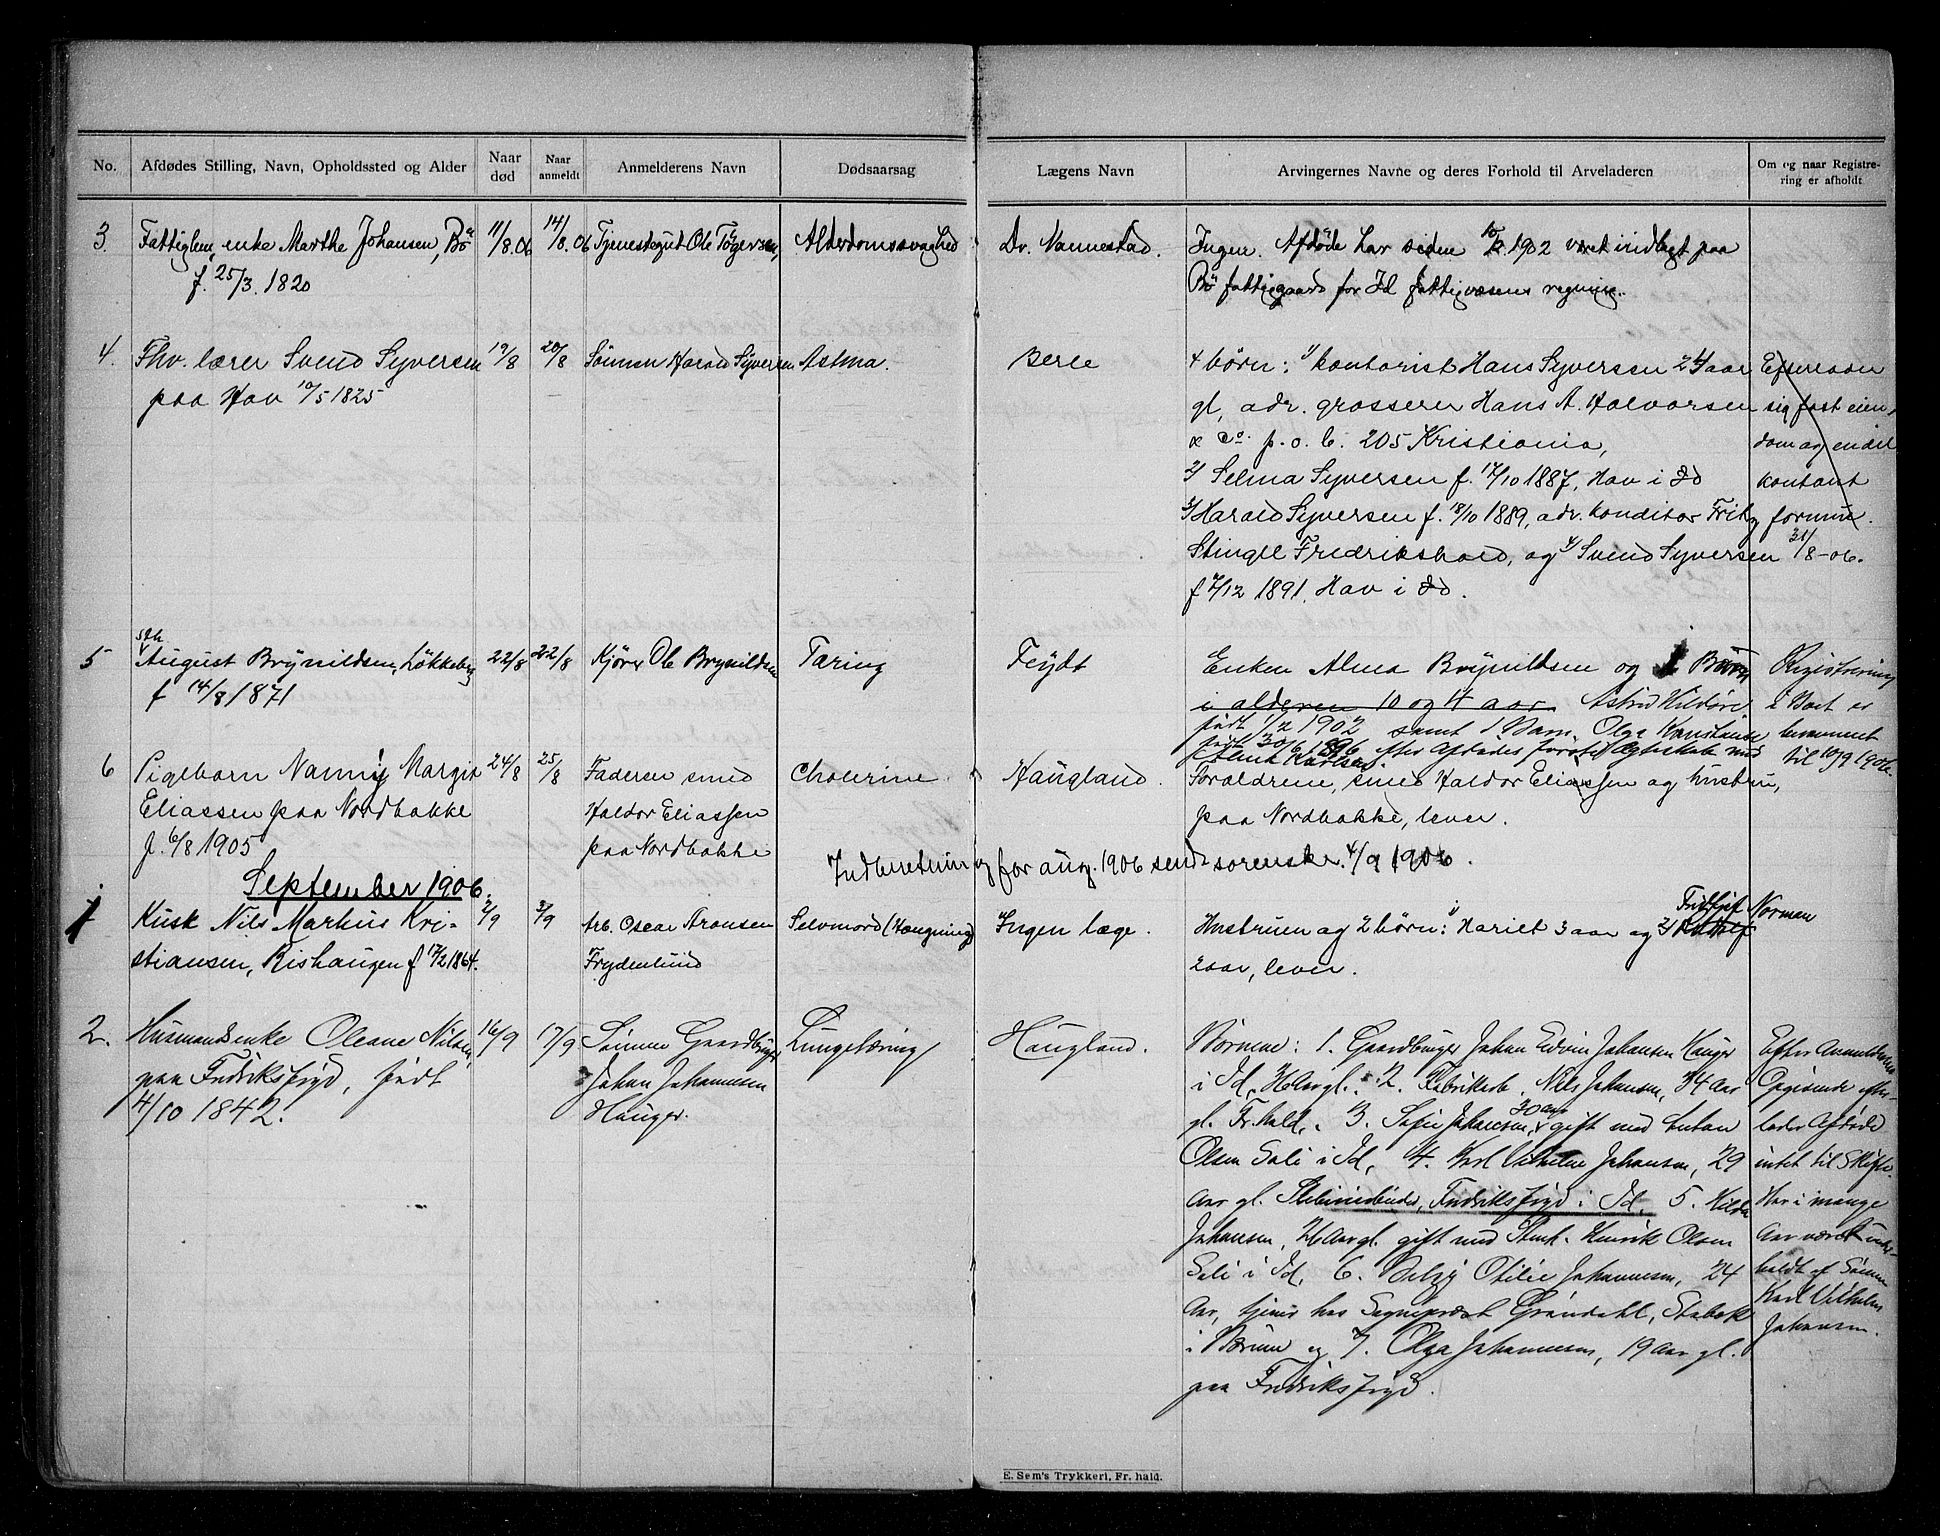 No. Afdødes Stilling, Navn, Opholdssted og Alder Naar død Naar anmeldt Anmelderens Navn Dødsaarsag Lægens Navn Arvingernes Navne og deres Forhold til Arveladeren Om og naar Registrering er afholdt
3. Fattiglem, enke Marthe Johansen, Bö 11/8.06 14/8.06 Tjenestegut Ole Tögersen, Alderdomssvaghed Dr. Nannestad. Ingen. Afdöde har siden 1902 været indlagt paa
f. 25/3. 1820 Bö fattiggaard for Id fattigvæsens regning.
4. Fhv. lærer Svend Syversen 19/8 20/8 Sönnen Harald Syversen Astma. Berle 4 börn: 1/ kontorist Hans Syversen 24 aar Efterladen
paa Hov 10/5 1825 gl, adr. grosserer Hans A. Halvorsen sig fast eien-
& Co. p.o.b. 205 Kristiania, dom og en del
2/ Selma Syversen f. 17/10 1887, Hov i Id kontant
3/ Harald Syversen f. 18/10 1889, adr. konditor Fritz formue.
Stingel Fredrikshald, og 4/ Svend Syversen 31/8-06.
f 7/12 1891, Hov i Id.
5 August Brynildsen, Lökkeberg 22/8 22/8 Kjörer Ole Brynildsen Tæring Feydt Enken Alma Brynildsen og 1 Barn Registrering
f 14/8 1871 i alderen 10 og 4 aar Astrid i Boet er
født 1/2 1902 samt 1 Barn Olga Konstanse berammet
født 30/6 1896 Afdødes første Ægteskab med til 10/9 1906.
6 Pigebarn Nanny Margit 24/8 25/8 Faderen smed Cholerine Haugland. Forældrene, smed Haldor Eliassen og hustru,
Eliassen paa Nordbakke Haldor Eliassen paa Nordbakke, lever.
f. 6/8 1905 paa Nordbakke
Indberetning for aug. 1906 sendt sorenskr. 4/9 1906.
September 1906.
1 Kusk Nils Markus Kri- 2/9 3/9 Arb. Oscar Aronsen Selvmord (Hængning) Ingen læge. Hustruen og 2 börn: 1/ Hariet 3 aar og 2/ Fridtjof Norman
stiansen, Rishaugen f 1864. Frydenlund 2 aar, lever.
2. Husmandsenke Oleane Nilsen 16/9 17/9 Sønnen Gaardbruger Lungetæring Haugland. Børnene: 1. Gaardbruger Johan Edvin Johansen Hauger Efter Anmelderens
paa Fredriksfryd, født Johan Johannesen i Id, aar gl. 2. Fabrikarb. Nils Johansen, 34 aar Opgivende efter-
4/10 1842. Hauger. gl. Fr.hald, 3. Sofie Johansen, 30 aar gift med Anton lader Afdøde
Olsen Sali i Id, 4. Karl Vilhelm Johansen, 29 intet til Skifte.
aar gl. Fredriksfryd i Id, 5. Hilda Har i mange
Johansen, 26 aar gl. gift med Stenh. Henrik Olsen Aar været under-
Sali i Id, 6. Otilie Johannesen, 24 holdt af Sønnen
aar, tjener hos Sogneprest Gröndahl, Stabæk Karl Vilhelm
i Bærum og 7. Olga Johannesen, 19 aar gl. Johansen.
paa Fredriksfryd.
E. Sem's Trykkeri, Fr. hald.